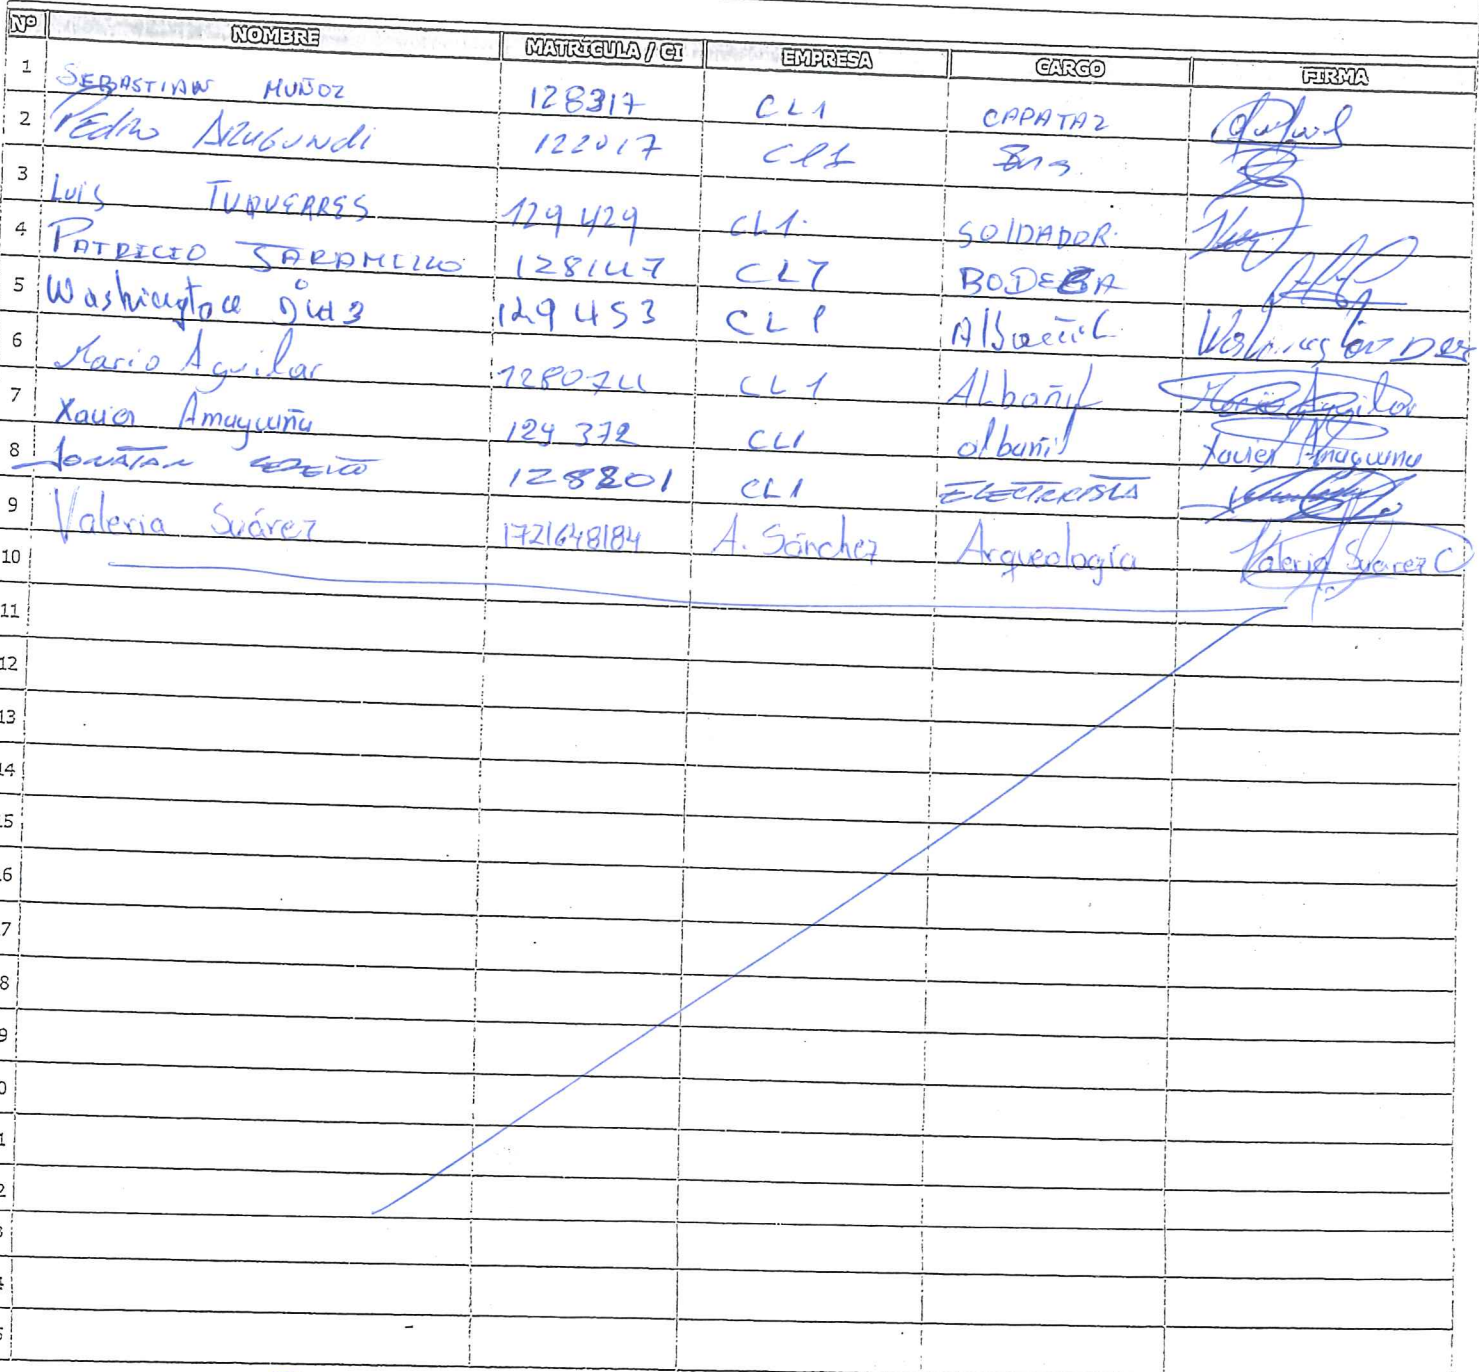 Nº NOMBRE MATRICULA / CI EMPRESA CARGO FIRMA
1 SEBASTIAN MUÑOZ 128317 CL1 CAPATAZ
2 PEdro 122017 CL1
3 Luis 129429 CL1. SOLDADOR.
4 PATRICIO JARAMILLO 128147 CL1 BODEGA
5 Washington 129453 CL1 Albañil Washington
6 Mario Aguilar CL1 Albañil Mario Aguilar
7 Xavier Amaguaña 129372 CL1 albañil Xavier Amaguaña
8 JONATAN 128801 CL1 ELECTRICISTA
9 Valeria Suárez 1721648184 A. Sánchez Arqueología Valeria Suárez C
10
11
12
13
14
15
16
17
18
19
20
21
22
23
24
25